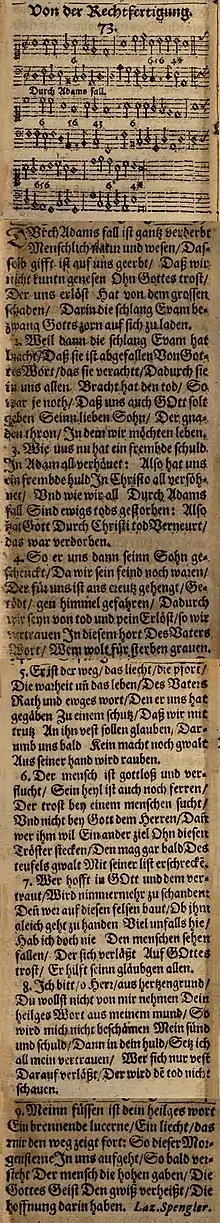 Von der Rechtfertigung.
73.
Durch Adams fall.
DUrch Adams fall ist gantz verderbt
Menschlich natur und wesen/ Das-
selb gifft ist auf uns geerbt/ Daß wir
nicht kuntn genesen Ohn Gottes trost/
Der uns erlöst Hat von dem grossen
schaden/ Darin die schlang Evam be-
zwang Gotts zorn auf sich zu laden.
2. Weil dann die schlang Evam hat
bracht/ Daß sie ist abgefallen Von Got-
tes Wort/ das sie veracht/ Dadurch sie
in uns allen. Bracht hat den tod/ So
war je noth/ Daß uns auch GOtt solt
geben Seinn lieben Sohn/ Der gna-
den thron/ In dem wir möchten leben.
3. Wie uns nu hat ein frembde schuld
In Adam all verhönet: Also hat uns
ein frembde huld In Christo all versöh-
net/ Und wie wir all Durch Adams
fall Sind ewigs tods gestorben: Also
hat Gott Durch Christi tod Verneurt/
das war verdorben.
4. So er uns dann seinn Sohn ge-
schenckt/ Da wir sein feind noch waren/
Der für uns ist ans creutz gehengt/ Ge-
tödt/ gen himmel gefahren/ Dadurch
wir seyn von tod und pein Erlöst/ so wir
vertrauen In diesem hort Des Vaters
Wort/ Wem wolt für sterben grauen.
5. Er ist der weg/ das liecht/ die pfort/
Die warheit uñ das leben/ Des Vaters
Rath und ewges wort/ Den er uns hat
gegäben Zu einem schutz/ Daß wir mit
trutz An ihn vest sollen glauben/ Dar-
umb uns bald Kein macht noch gwalt
Aus seiner hand wird rauben.
6. Der mensch ist gottloß und ver-
flucht/ Sein heyl ist auch noch ferren/
Der trost bey einem menschen sucht/
Und nicht bey Gott dem Herren/ Dañ
wer ihm wil Ein ander ziel Ohn diesen
Tröster stecken/ Den mag gar bald Des
teufels gwalt Mit seiner list erschreckẽ.
7. Wer hofft in GOtt und dem ver-
traut/ Wird nimmermehr zu schanden:
Deñ wer auf diesen felsen baut/ Ob ihm
gleich geht zu handen Viel unfalls hie/
Hab ich doch nie Den menschen sehen
fallen/ Der sich verläßt Auf GOttes
trost/ Er hilft seinn gläubgen allen.
8. Ich bitt/ o Herr/ aus hertzengrund/
Du wollst nicht von mir nehmen Dein
heilges Wort aus meinem mund/ So
wird mich nicht beschämen Mein sünd
und schuld/ Dann in dein huld/ Setz ich
all mein vertrauen/ Wer sich nur vest
Darauf verläßt/ Der wird dẽ tod nicht
schauen.
9. Meinn füssen ist dein heilges wort
Ein brennende lucerne/ Ein liecht/ das
mir den weg zeigt fort: So dieser Mor-
gensterne In uns aufgeht/ So bald ver-
steht Der mensch die hohen gaben/ Die
Gottes Geist Den gwiß verheißt/ Die
hoffnung darin haben. Laz. Spengler.